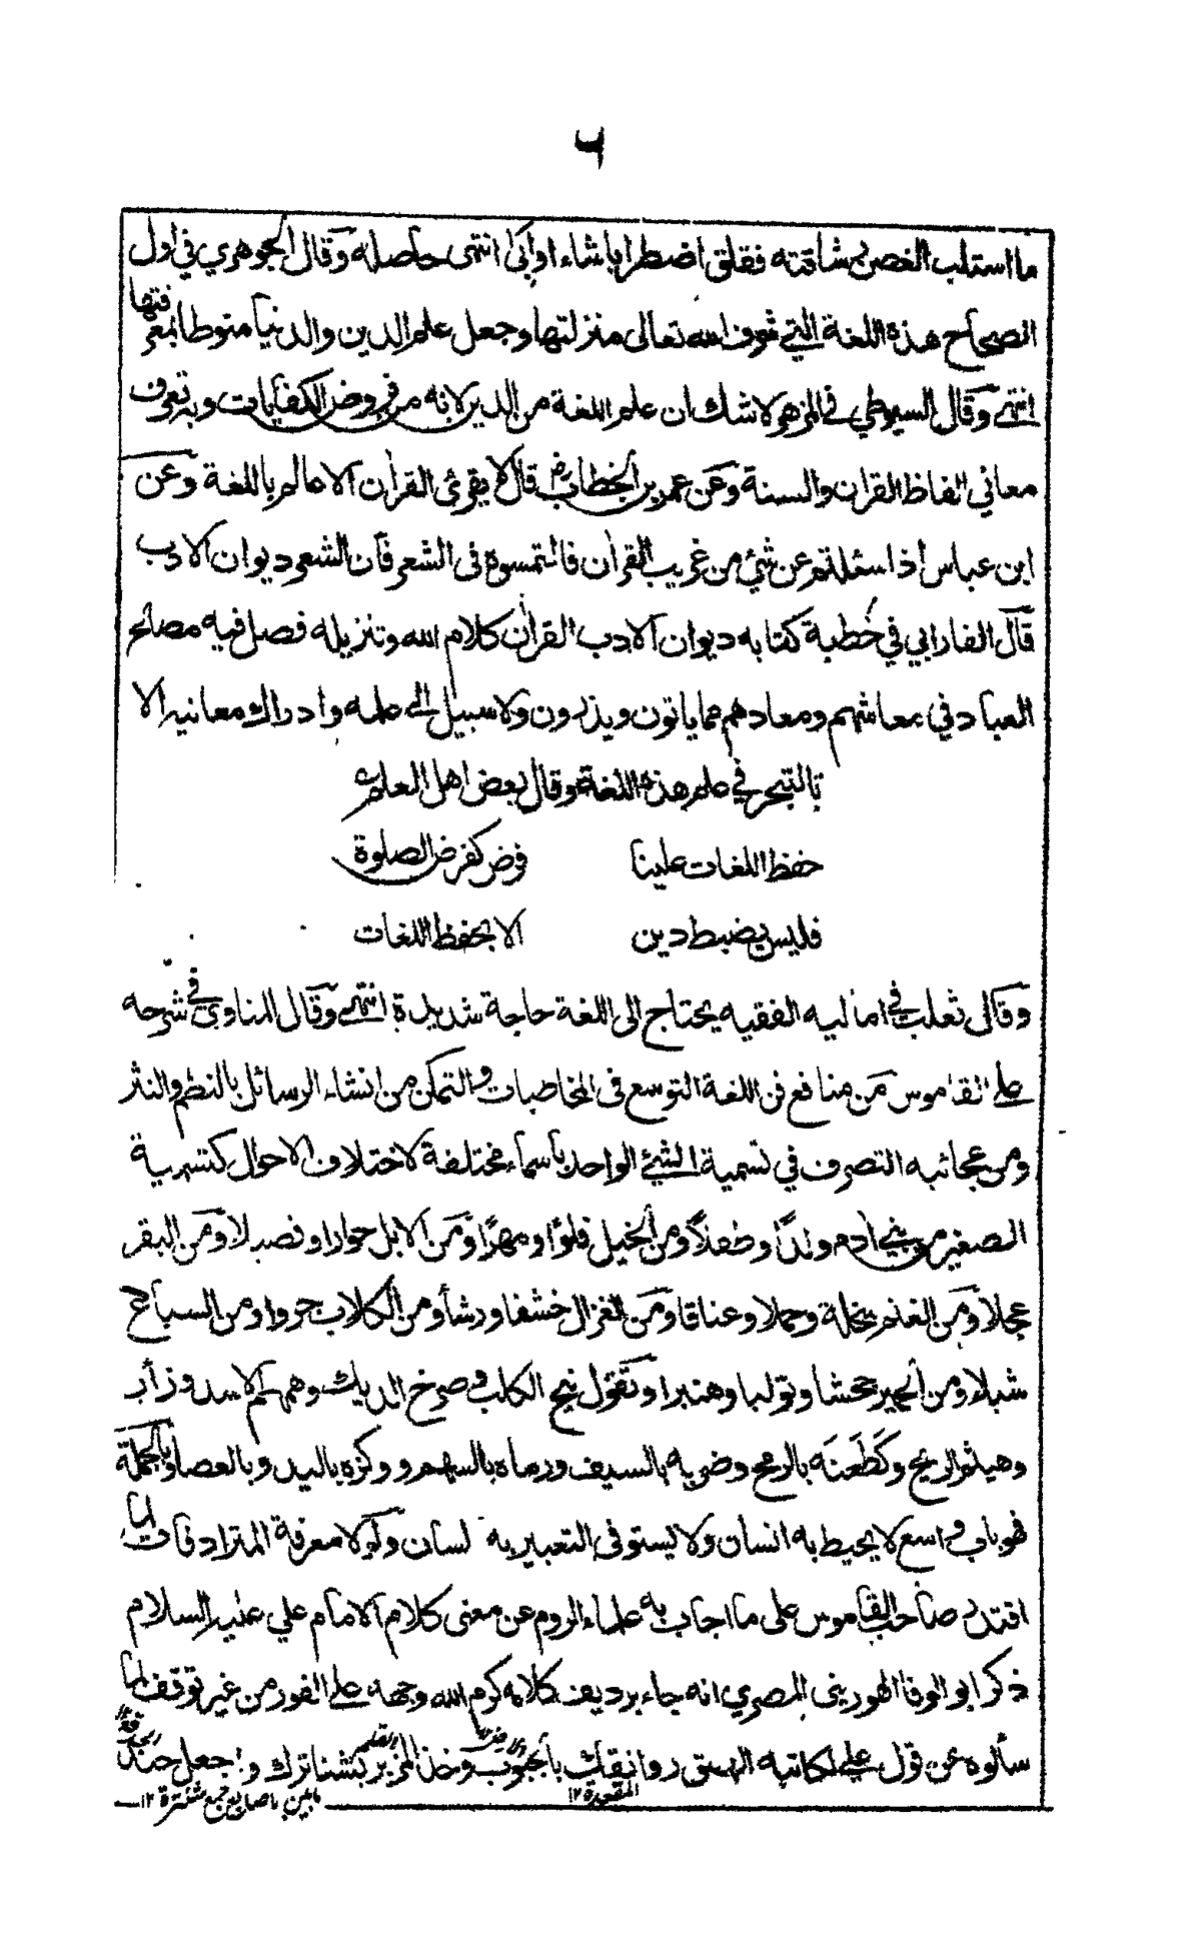 ٦
ما استلب الغصن بشاقته فقلق اضطرابا شاء او ابى انتهى حاصله وقال الجوهري في اول
الصحاح هذه اللغة التي شرف الله تعالى منزلتها وجعل علم الدين والدنيا منوطا بمعرفتها
انتهى وقال السيوطي في المزهر لا شك ان علم اللغة من الدين لانه من فروض الكفايات وبه تعرف
معاني الفاظ القران والسنة وعن عمر بن الخطاب رض قال لا يقرئ القران الا عالم باللغة وعن
ابن عباس اذا سئلتم عن شيء من غريب القران فالتمسوه في الشعر فان الشعر ديوان الادب
قال الفارابي في خطبة كتابه ديوان الادب القران كلام الله وتنزيله فصل فيه مصالح
العباد في معاشهم ومعادهم مما ياتون ويذرون ولا سبيل الى علمه وادراك معانيه الا
بالتبحر في علم هذه اللغة وقال بعض اهل العلم
حفظ اللغات علينا فرض كفرض الصلوة
فليس يضبط دين الا بحفظ اللغات
وقال ثعلب في اماليه الفقيه يحتاج الى اللغة حاجة شديدة انتهى وقال المناوي في شرحه
على القاموس من منافع فن اللغة التوسع في المخاطبات والتمكن من انشاء الرسائل بالنظم والنثر
ومن عجائبه التصرف في تسمية الشيء الواحد باسماء مختلفة لاختلاف الاحوال كتسمية
الصغير من بني ادم ولدًا وطفلًا ومن الخيل فلوًا ومهرًا ومن الابل حوارا وفصيلا ومن البقر
عجلا ومن الغنم سخلة وحملا وعناقا ومن الغزال خشفا ورشأ ومن الكلاب جروا ومن السباع
شبلا ومن الحمير جحشا وتولبا وهنبرا وتقول نبح الكلب وصرخ الديك وهمهم الاسد وزأر
وهينم الريح وكَطَعَنَه بالرمح وضربه بالسيف ورماه بالسهم ووكزه باليد وبالعصا وبالجملة
فهو باب واسع لا يحيط به انسان ولا يستوفي التعبير به لسان ولولا معرفة المترادفات لما
اقتدر صاحب القاموس على ما اجاب به علماء الروم عن معنى كلام الامام علي عليه السلام
ذكر ابو الوفا الهوريني المصري انه جاء برديف كلامه كرم الله وجهه على الفور من غير توقف لما
سألوه عن قول علي لكاتبه الصق روانفك بالجبوب وخذ المزبر بشناترك واجعل
المقعدة ١٢ الارض القلم
١٢